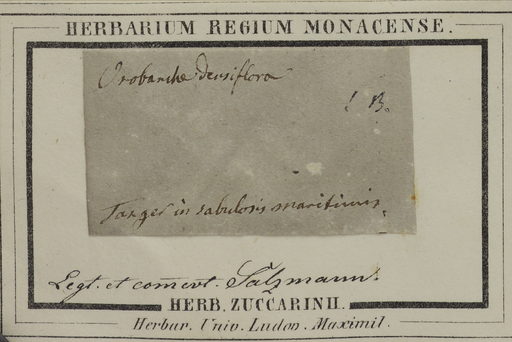 HERBARIUM REGIUM MONACENSE.
Orobanche densiflora
! B.
Tanger in sabulosis maritimis.
Legt. et com̅vt. Salzmann.
HERB. ZUCCARINII.
Herbar. Univ. Ludov. Maximil.